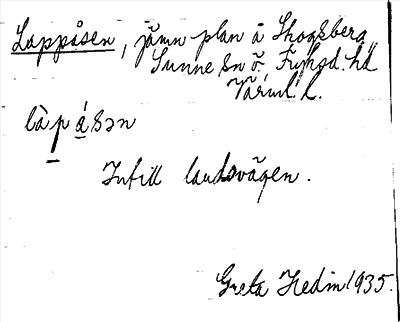 Lappåsen, jämn plan å Skogsberg,
Sunne sn ö. Fryksd. hd
Värml. l.
làpásən
Intill landsvägen.
Greta Hedin 1935.